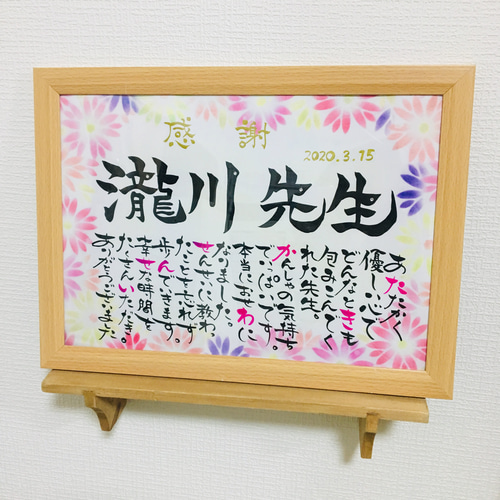 感謝
2020.3.15
瀧川先生
あたたかく
優しい心で
どんなときも
包みこんでく
れた先生。
かんしゃの気持ち
でいっぱいです。
本当におせわに
なりました。
せんせいに教わっ
たことを忘れず
歩んできます。
幸せな時間を
たくさんいただき。
ありがとうございました